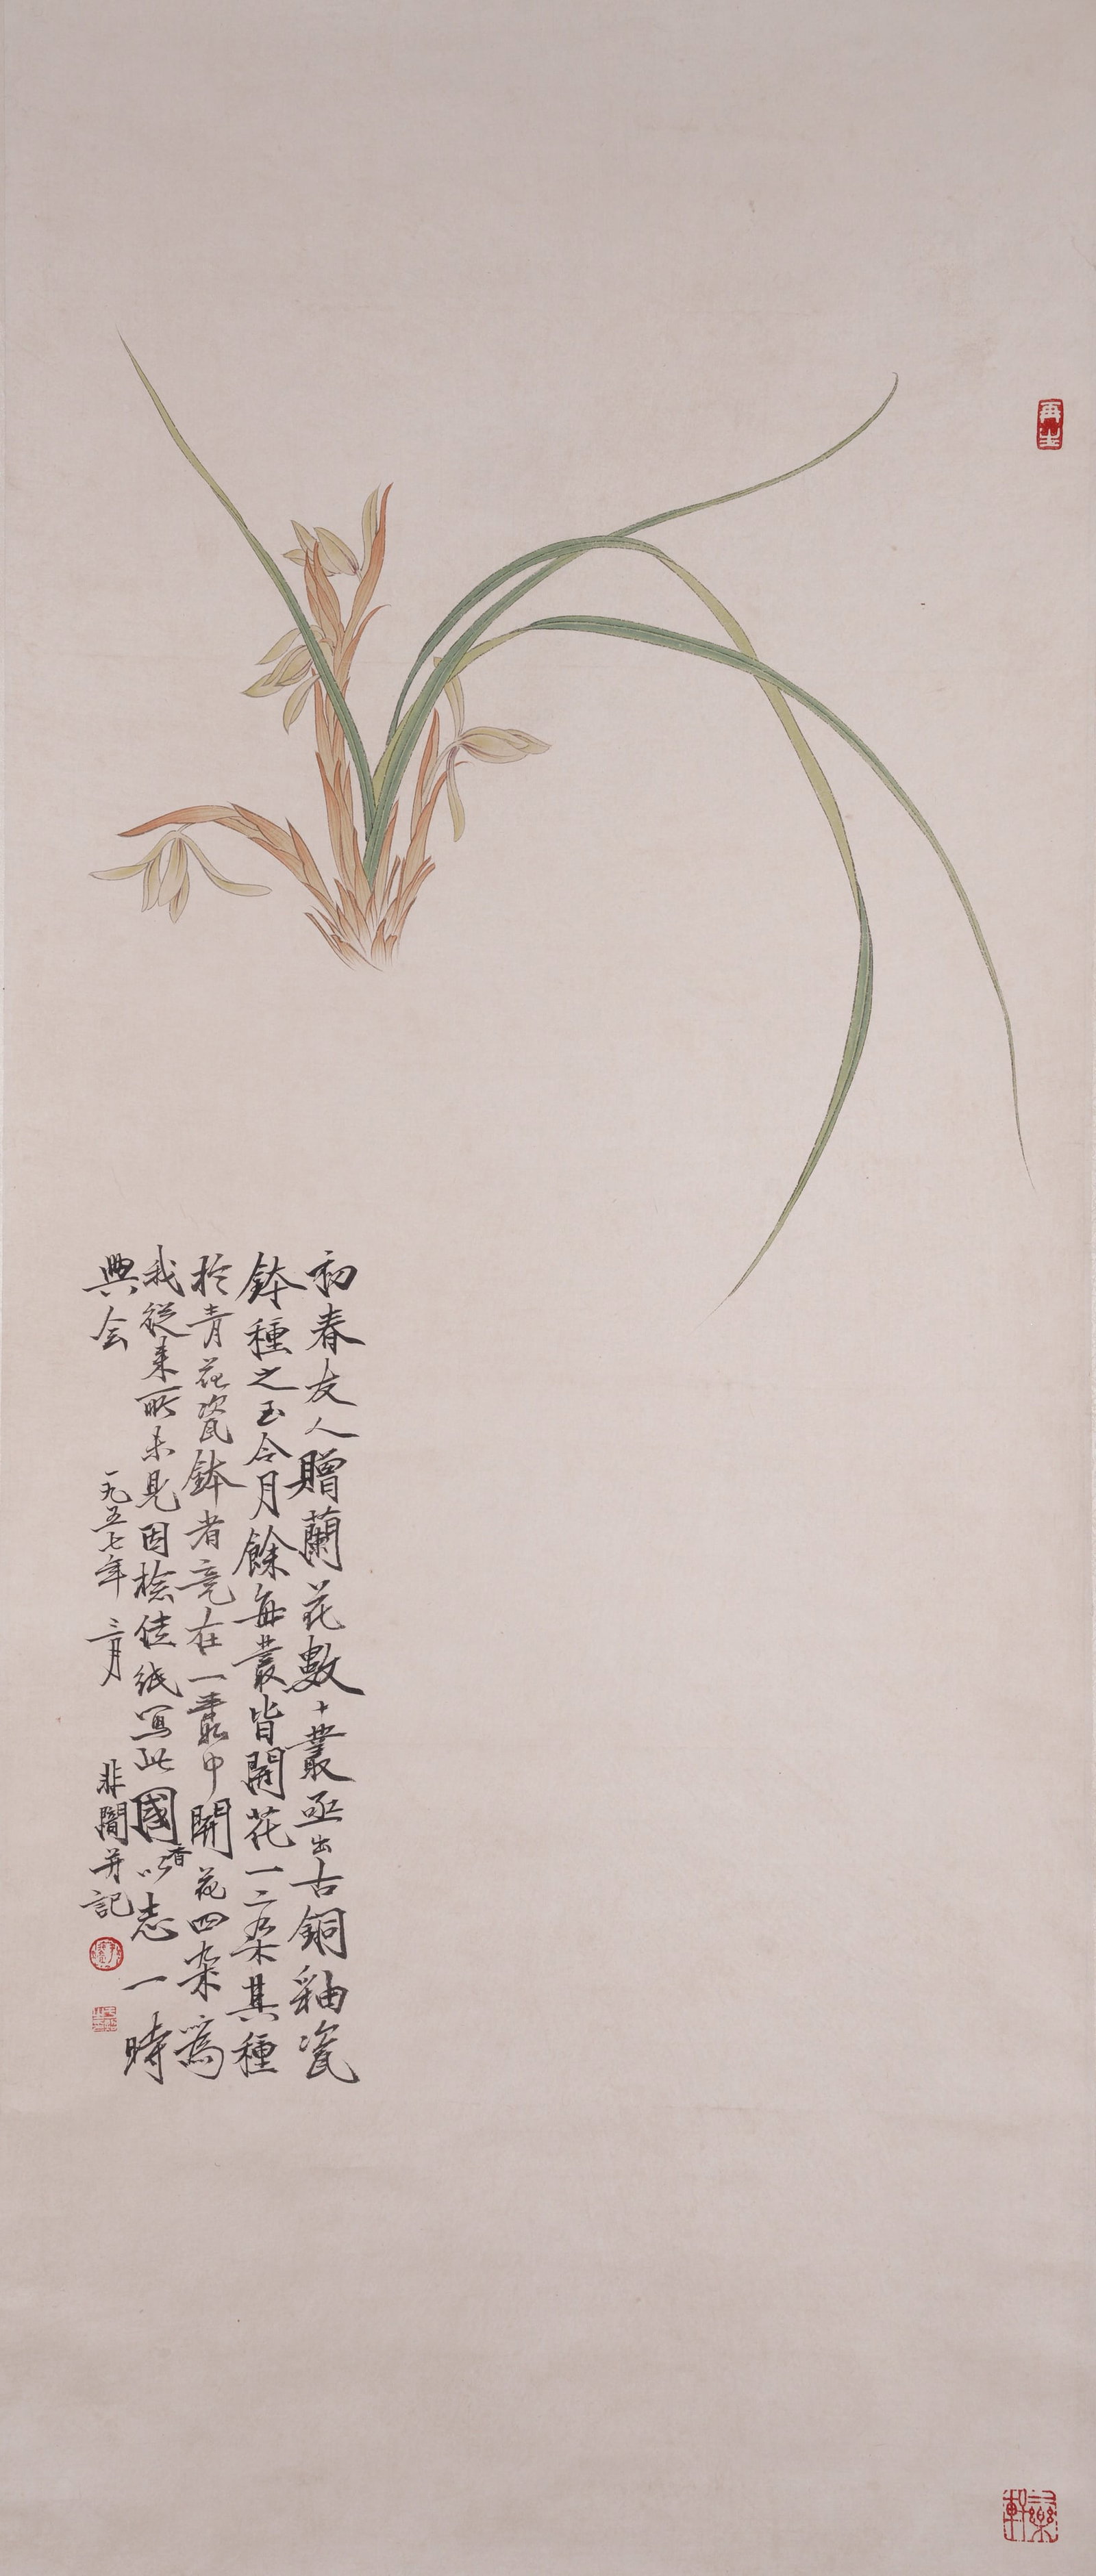 初春友人贈蘭花數十叢亟出古銅釉瓷
鉢種之玉今月餘每叢皆開花一二朵其種
於青花瓷鉢者竟在一叢中開花四朵為
我從來所未見因檢佳紙写此國香以志一時
興会
一九五七年三月
非闇并記
再生